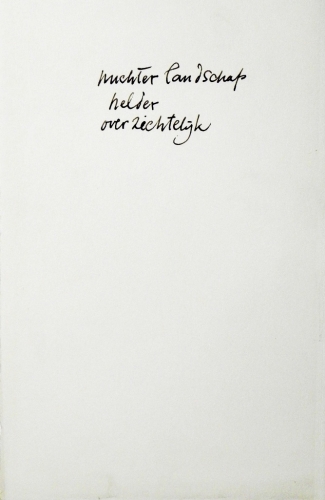 nuchter landschap
helder
overzichtelijk